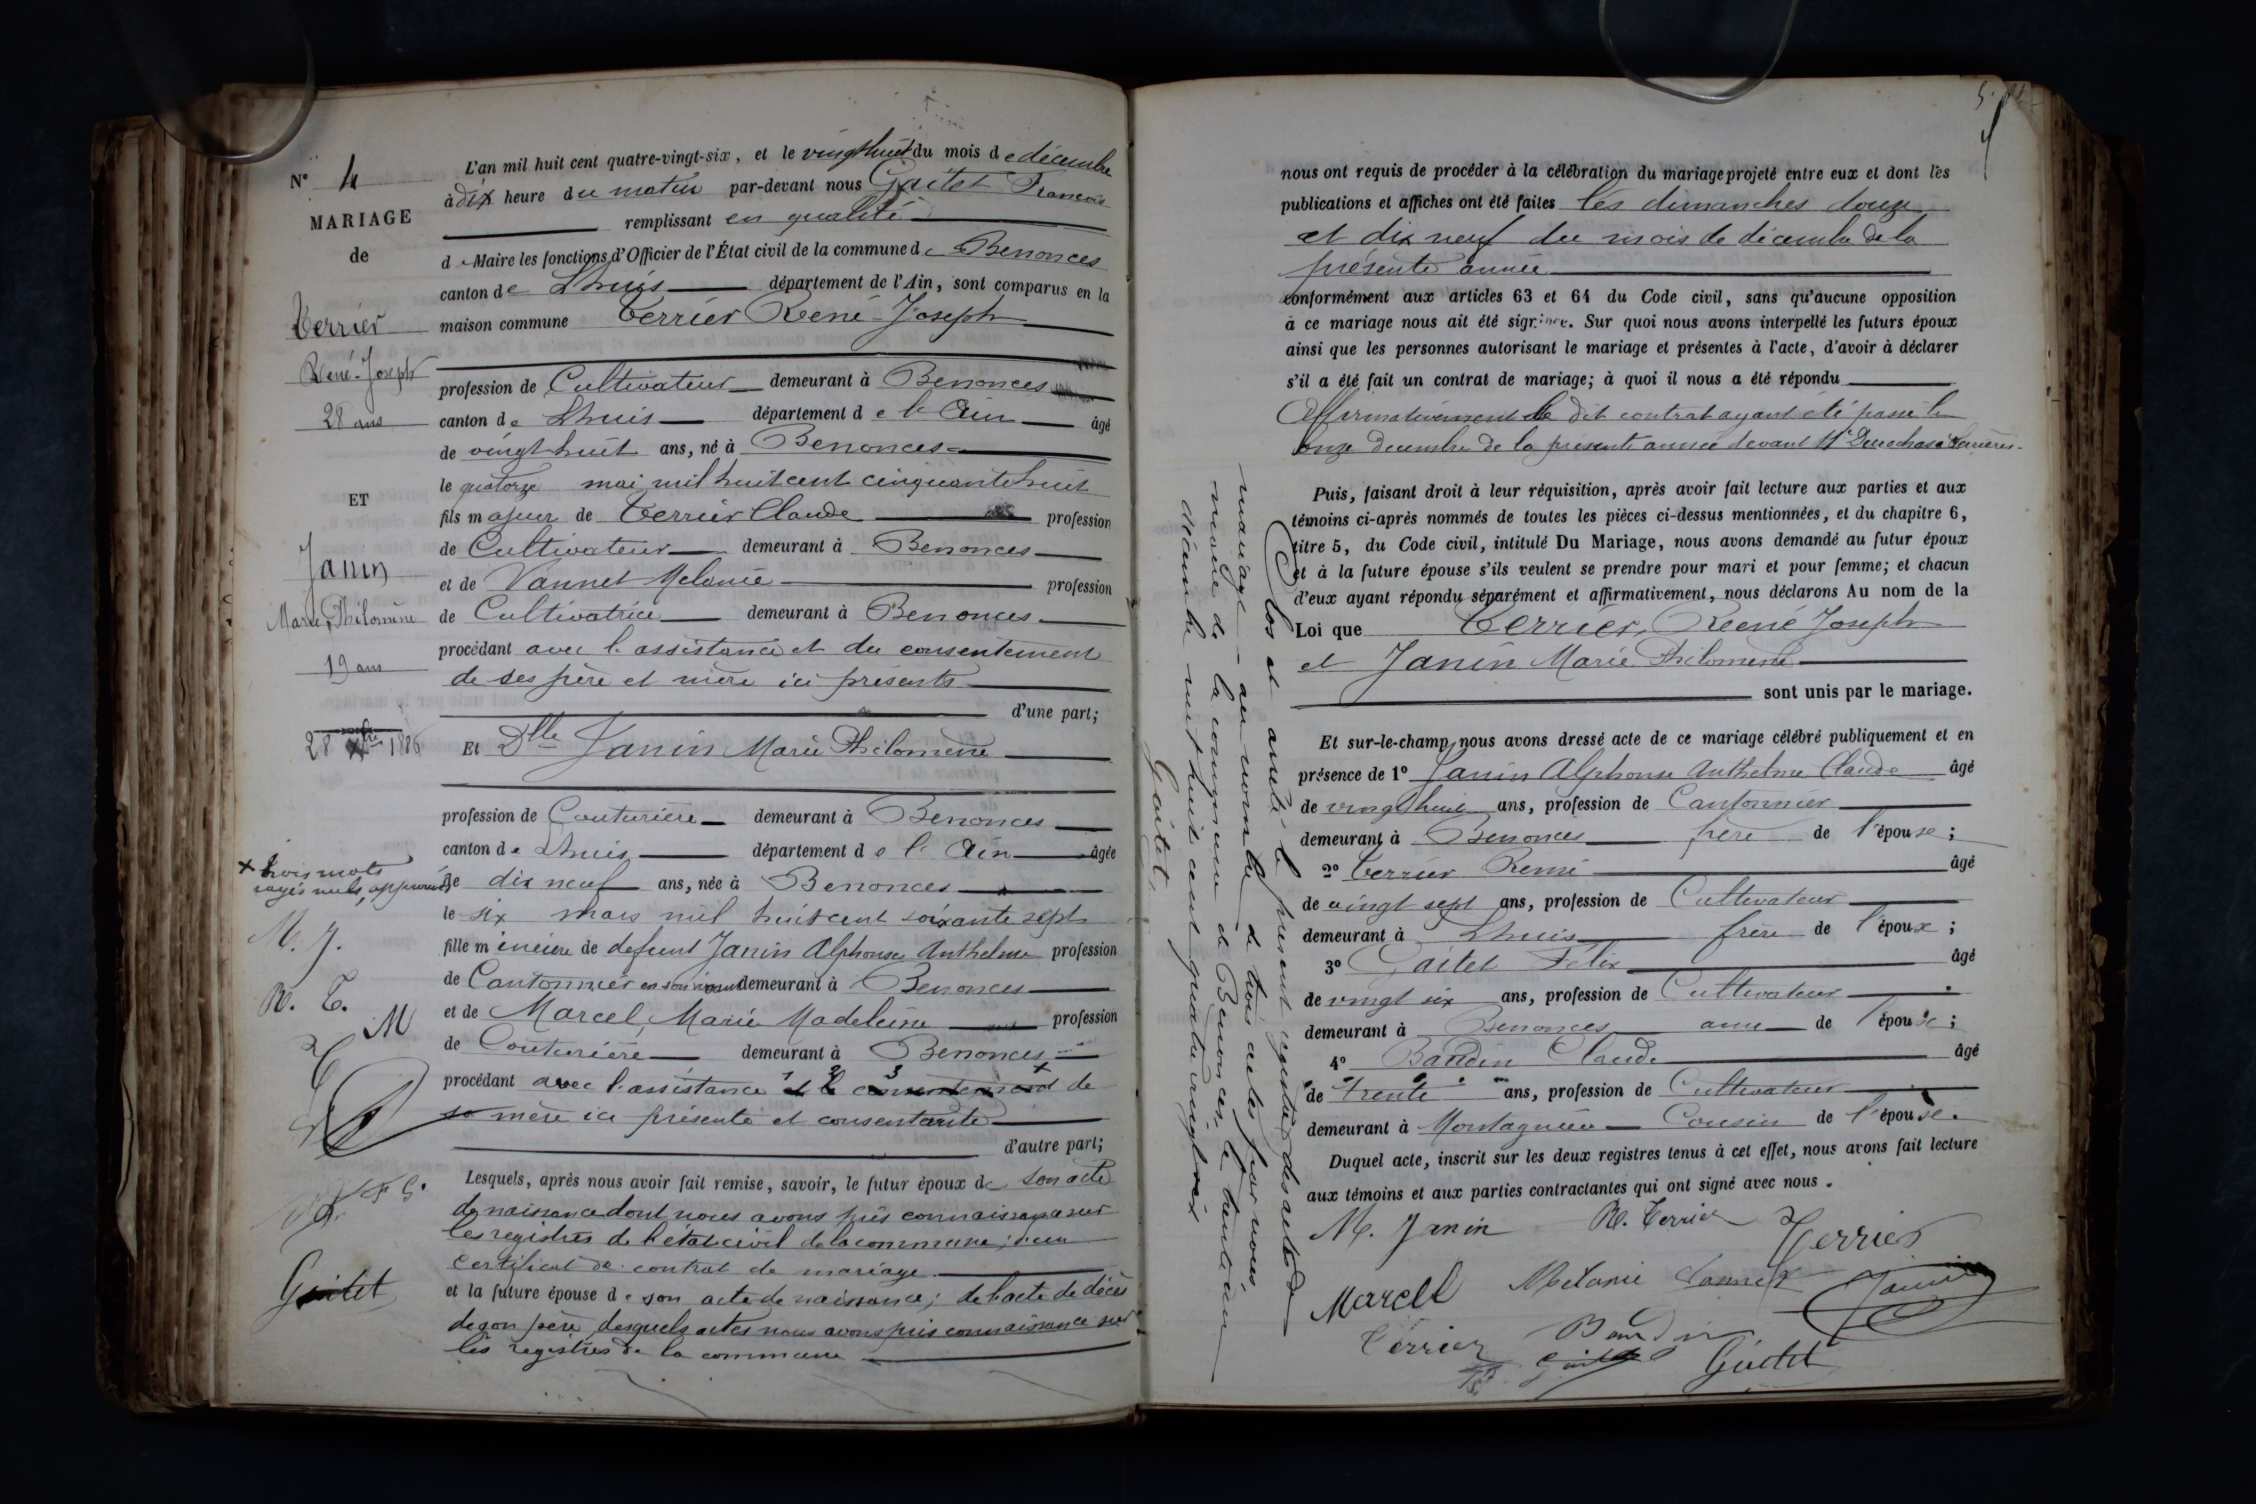 N° 4
MARIAGE
de
Terrier
René-Joseph
28 ans
ET
Janin
Marie Philomène
19 ans
28 Xbre 1886
x trois mots
rayés nuls, approuvés
M. J.
R. T.
M
F G.
Gaitet
L'an mil huit cent quatre-vingt-six, et le vingt huit du mois de décembre
à dix heure du matin par-devant nous Gaitet François
remplissant en qualité
de Maire les fonctions d'Officier de l'État civil de la commune de Benonces
canton de Lhuis département de l'Ain, sont comparus en la
maison commune Terrier René-Joseph
profession de Cultivateur demeurant à Benonces
canton de Lhuis département de l'Ain âgé
de vingt-huit ans, né à Benonces
le quatorze mai mil huit cent cinquante huit
fils majeur de Terrier Claude profession
de Cultivateur demeurant à Benonces
et de Vannet Melanie profession
de Cultivatrice demeurant à Benonces
procédant avec l'assistance et du consentement
de ses père et mère ici présents
d'une part;
Et Dlle Janin Marie Philomène
profession de Couturière demeurant à Benonces
canton de Lhuis département de l'Ain âgée
de dix neuf ans, née à Benonces
le six mars mil huit cent soixante sept
fille mineure de defunt Janin Alphonse Anthelme profession
de Cantonnier en son vivant demeurant à Benonces
et de Marcel, Marie Madeleine profession
de Couturière demeurant à Benonces
procédant avec l'assistance et le consentement de
sa mère ici présente et consentante
d'autre part;
Lesquels, après nous avoir fait remise, savoir, le futur époux de son acte
de naissance dont nous avons pris connaissance sur
les registres de l'état civil de la commune; d'un
certificat de contrat de mariage
et la future épouse de son acte de naissance; de l'acte de décès
de son père, desquels actes nous avons pris connaissance sur
les registres de la commune
nous ont requis de procéder à la célébration du mariage projeté entre eux et dont les
publications et affiches ont été faites les dimanches douze
et dix neuf du mois de décembre de la
présente année
conformément aux articles 63 et 64 du Code civil, sans qu'aucune opposition
à ce mariage nous ait été signifiée. Sur quoi nous avons interpellé les futurs époux
ainsi que les personnes autorisant le mariage et présentes à l'acte, d'avoir à déclarer
s'il a été fait un contrat de mariage; à quoi il nous a été répondu
Affirmativement le dit contrat ayant été passé le
onze décembre de la présente année devant Me
Puis, faisant droit à leur réquisition, après avoir fait lecture aux parties et aux
témoins ci-après nommés de toutes les pièces ci-dessus mentionnées, et du chapitre 6,
titre 5, du Code civil, intitulé Du Mariage, nous avons demandé au futur époux
et à la future épouse s'ils veulent se prendre pour mari et pour femme; et chacun
d'eux ayant répondu séparément et affirmativement, nous déclarons Au nom de la
Loi que Terrier, René Joseph
et Janin Marie Philomène
sont unis par le mariage.
Et sur-le-champ nous avons dressé acte de ce mariage célébré publiquement et en
présence de 1° Janin Alphonse Anthelme Claude âgé
de vingt huit ans, profession de Cantonnier
demeurant à Benonces frère de l'épouse;
2° Terrier Remi âgé
de vingt sept ans, profession de Cultivateur
demeurant à Lhuis frère de l'époux;
3° Gaitet Félix âgé
de vingt six ans, profession de Cultivateur
demeurant à Benonces ami de l'épouse;
4° Baudin Claude âgé
de trente ans, profession de Cultivateur
demeurant à Montagnieu Cousin de l'épouse.
Duquel acte, inscrit sur les deux registres tenus à cet effet, nous avons fait lecture
aux témoins et aux parties contractantes qui ont signé avec nous.
M. Janin R. Terrier Terrier
Marcel Melanie Vannet Janin
Terrier Baudin
Gaitet Gaitet
Clos et arrêté le présent registre des actes de
mariage - au nombre de trois actes, par nous,
maire de la commune de Benonces, le trente un
décembre mil huit cent quatre vingt six
Gaitet